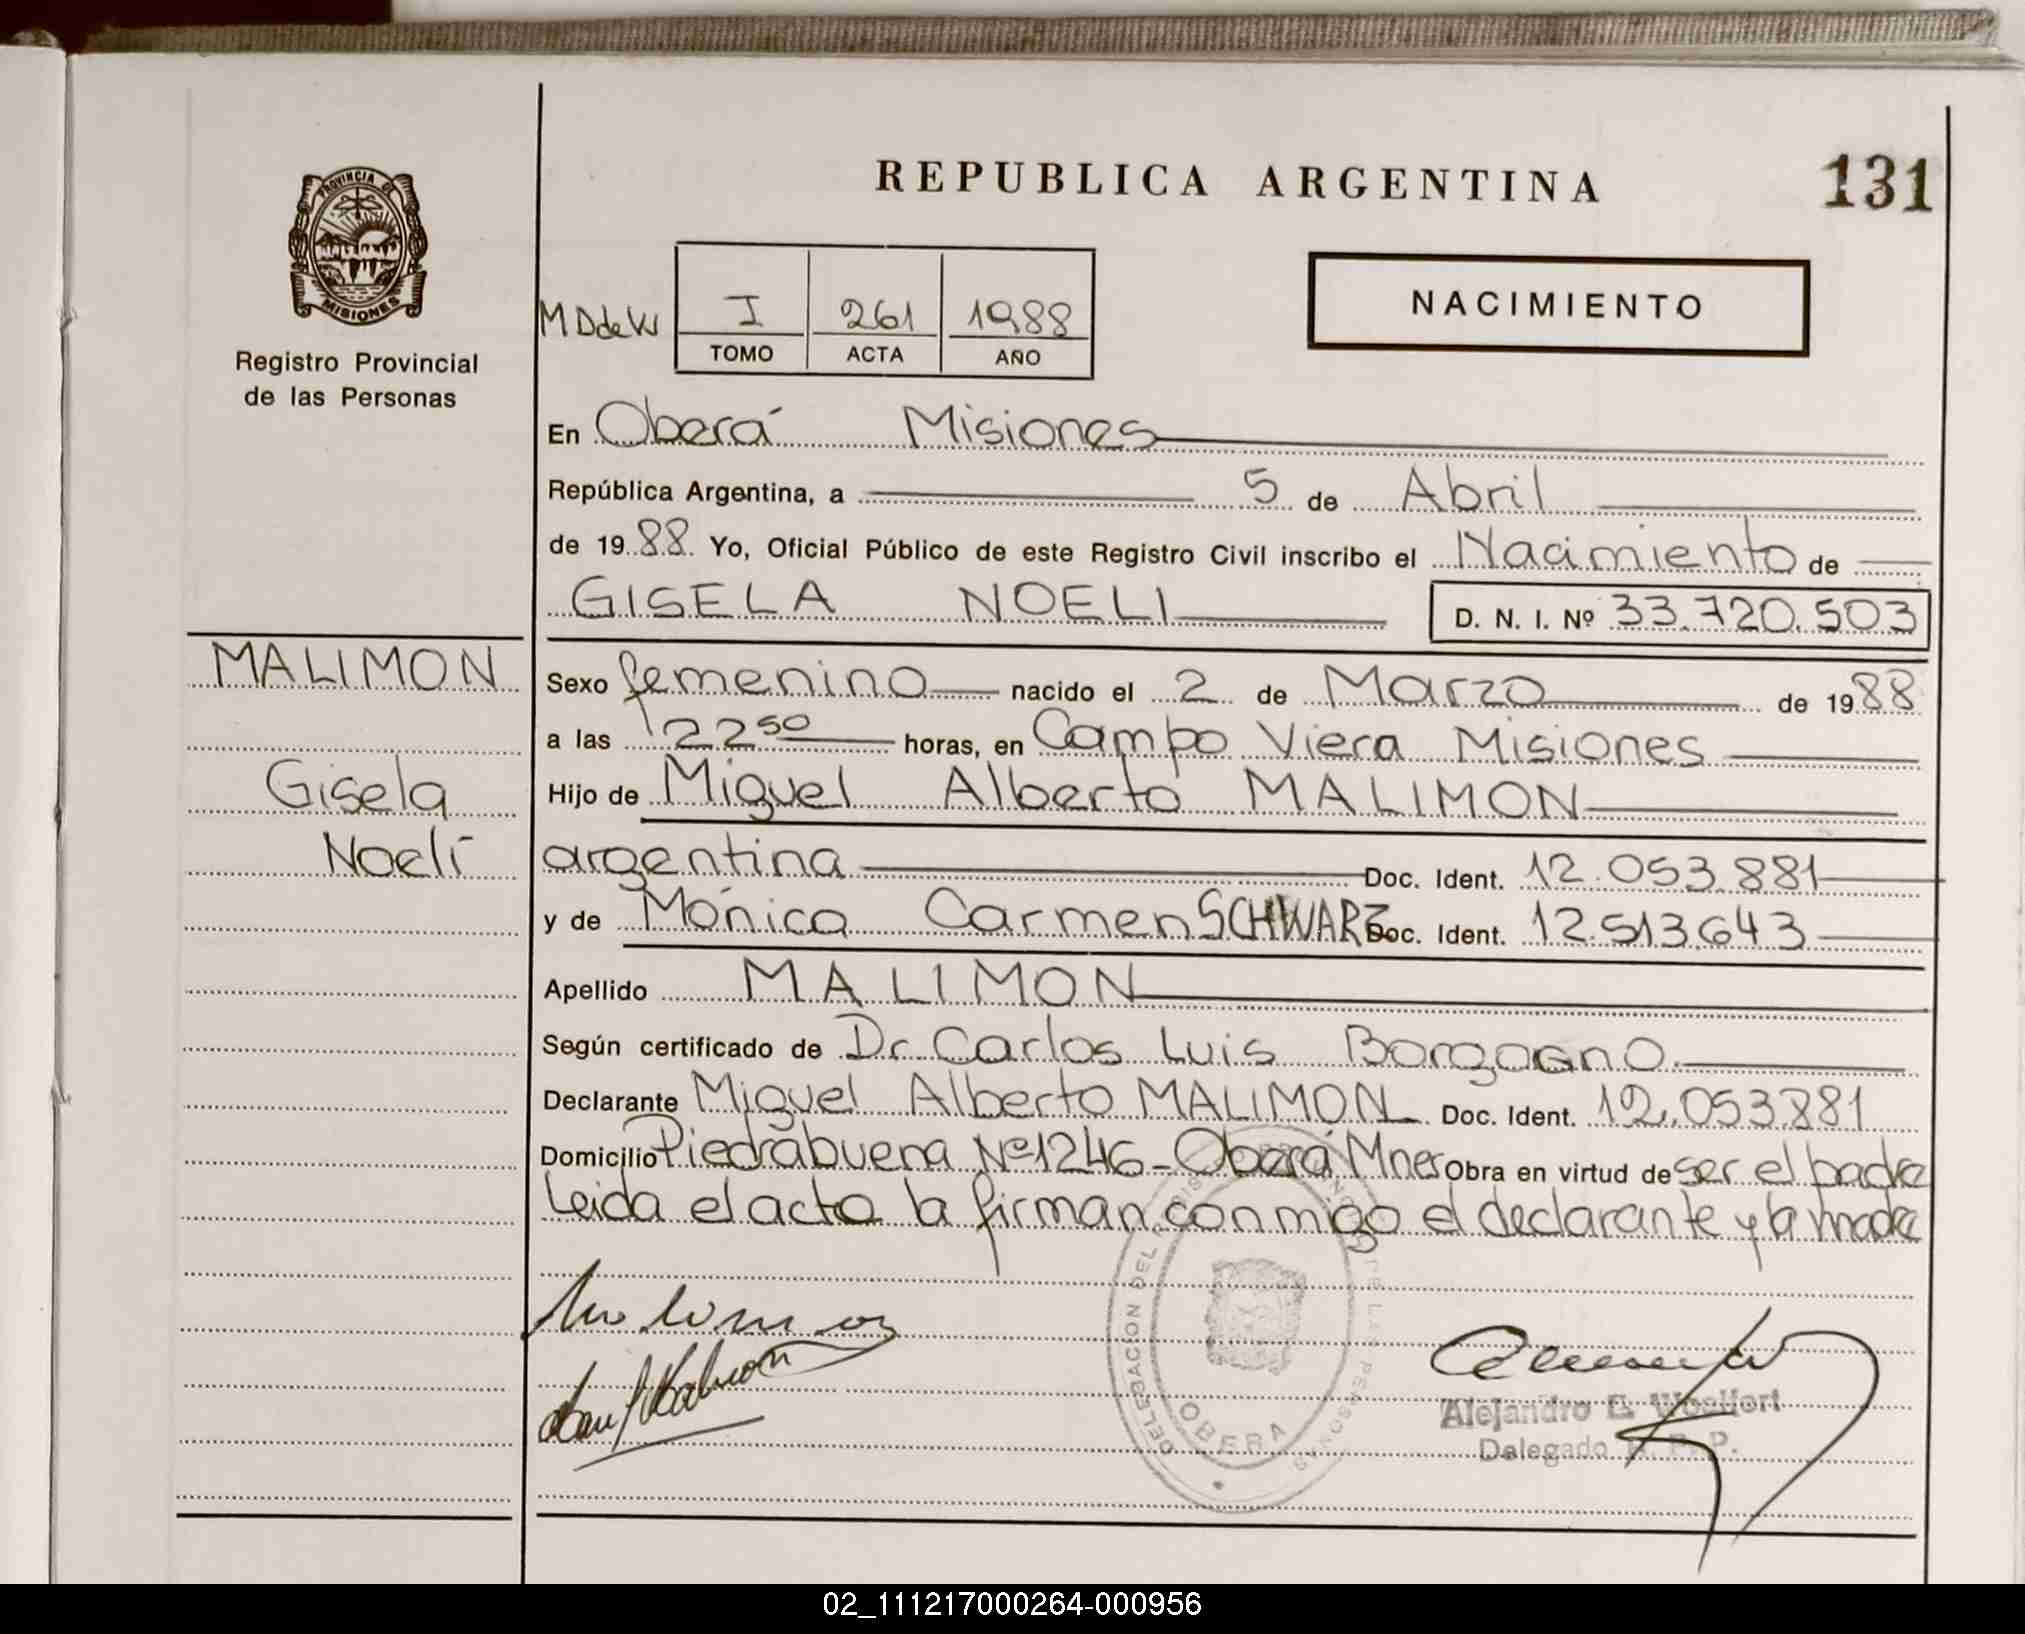 REPUBLICA ARGENTINA
131
PROVINCIA DE
MISIONES
Registro Provincial
de las Personas
M D de W
I 261 1988
TOMO ACTA AÑO
NACIMIENTO
En Oberá Misiones
República Argentina, a 5 de Abril
de 1988 Yo, Oficial Público de este Registro Civil inscribo el Nacimiento de
GISELA NOELI D. N. I. Nº 33.720.503
MALIMON
Gisela
Noelí
Sexo femenino nacido el 2 de Marzo de 1988
a las 22 50 horas, en Campo Viera Misiones
Hijo de Miguel Alberto MALIMON
argentina Doc. Ident. 12.053.881
y de Mónica Carmen SCHWARZ Doc. Ident. 12.513.643
Apellido MALIMON
Según certificado de Dr. Carlos Luis Borgogno
Declarante Miguel Alberto MALIMON Doc. Ident. 12.053.881
Domicilio Piedrabuena Nº 1246 - Oberá Mnes Obra en virtud de ser el padre
Leida el acta la firman conmigo el declarante y la madre
DELEGACION DEL LAS PERSONAS
OBERA
Alejandro E. Woelfert
Delegado R. P. P.
02_111217000264-000956